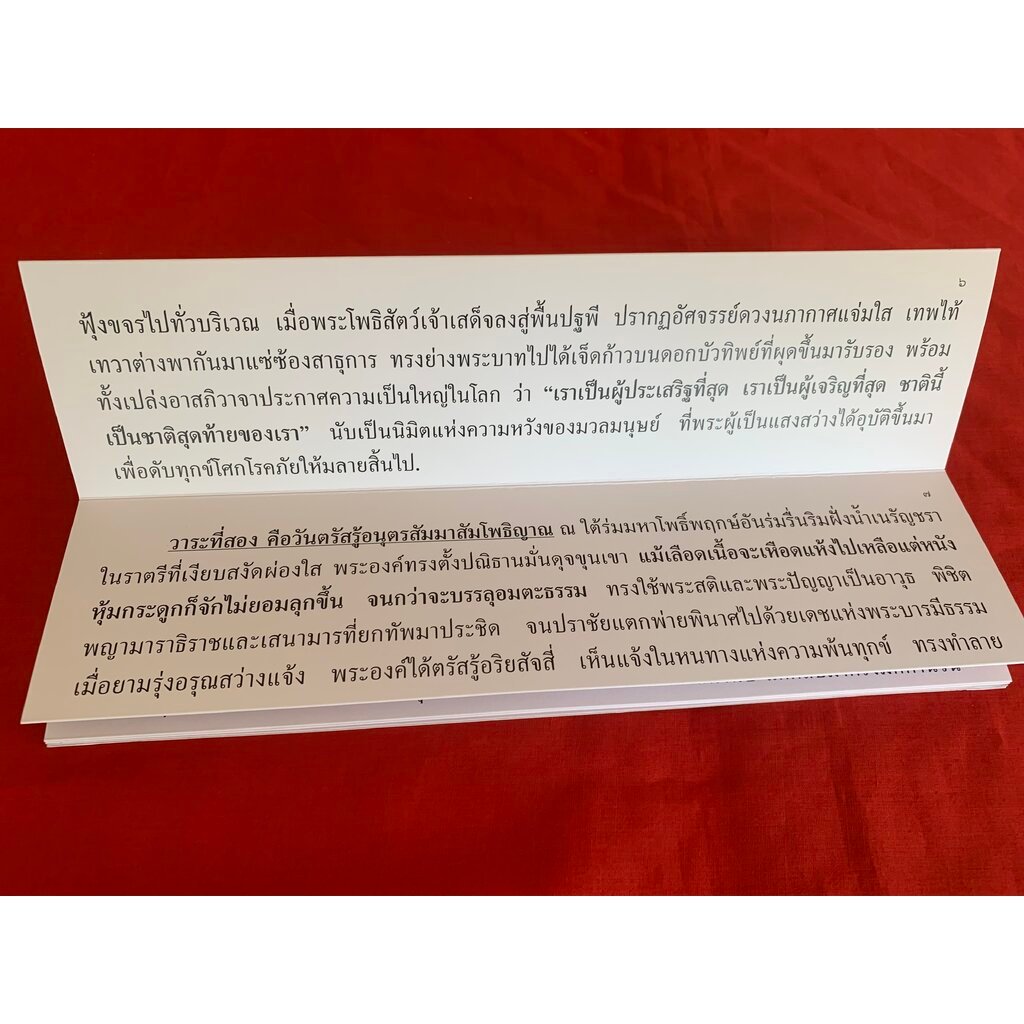 ๖
ฟุ้งขจรไปทั่วบริเวณ เมื่อพระโพธิสัตว์เจ้าเสด็จลงสู่พื้นปฐพี ปรากฏอัศจรรย์ดวงนภากาศแจ่มใส เทพไท้
เทวาต่างพากันมาแซ่ซ้องสาธุการ ทรงย่างพระบาทไปได้เจ็ดก้าวบนดอกบัวทิพย์ที่ผุดขึ้นมารับรอง พร้อม
ทั้งเปล่งอาสภิวาจาประกาศความเป็นใหญ่ในโลก ว่า “เราเป็นผู้ประเสริฐที่สุด เราเป็นผู้เจริญที่สุด ชาตินี้
เป็นชาติสุดท้ายของเรา” นับเป็นนิมิตแห่งความหวังของมวลมนุษย์ ที่พระผู้เป็นแสงสว่างได้อุบัติขึ้นมา
เพื่อดับทุกข์โศกโรคภัยให้มลายสิ้นไป.
๗
วาระที่สอง คือวันตรัสรู้อนุตรสัมมาสัมโพธิญาณ ณ ใต้ร่มมหาโพธิ์พฤกษ์อันร่มรื่นริมฝั่งน้ำเนรัญชรา
ในราตรีที่เงียบสงัดผ่องใส พระองค์ทรงตั้งปณิธานมั่นดุจขุนเขา แม้เลือดเนื้อจะเหือดแห้งไปเหลือแต่หนัง
หุ้มกระดูกก็จักไม่ยอมลุกขึ้น จนกว่าจะบรรลุอมตะธรรม ทรงใช้พระสติและพระปัญญาเป็นอาวุธ พิชิต
พญามาราธิราชและเสนามารที่ยกทัพมาประชิด จนปราชัยแตกพ่ายพินาศไปด้วยเดชแห่งพระบารมีธรรม
เมื่อยามรุ่งอรุณสว่างแจ้ง พระองค์ได้ตรัสรู้อริยสัจสี่ เห็นแจ้งในหนทางแห่งความพ้นทุกข์ ทรงทำลาย